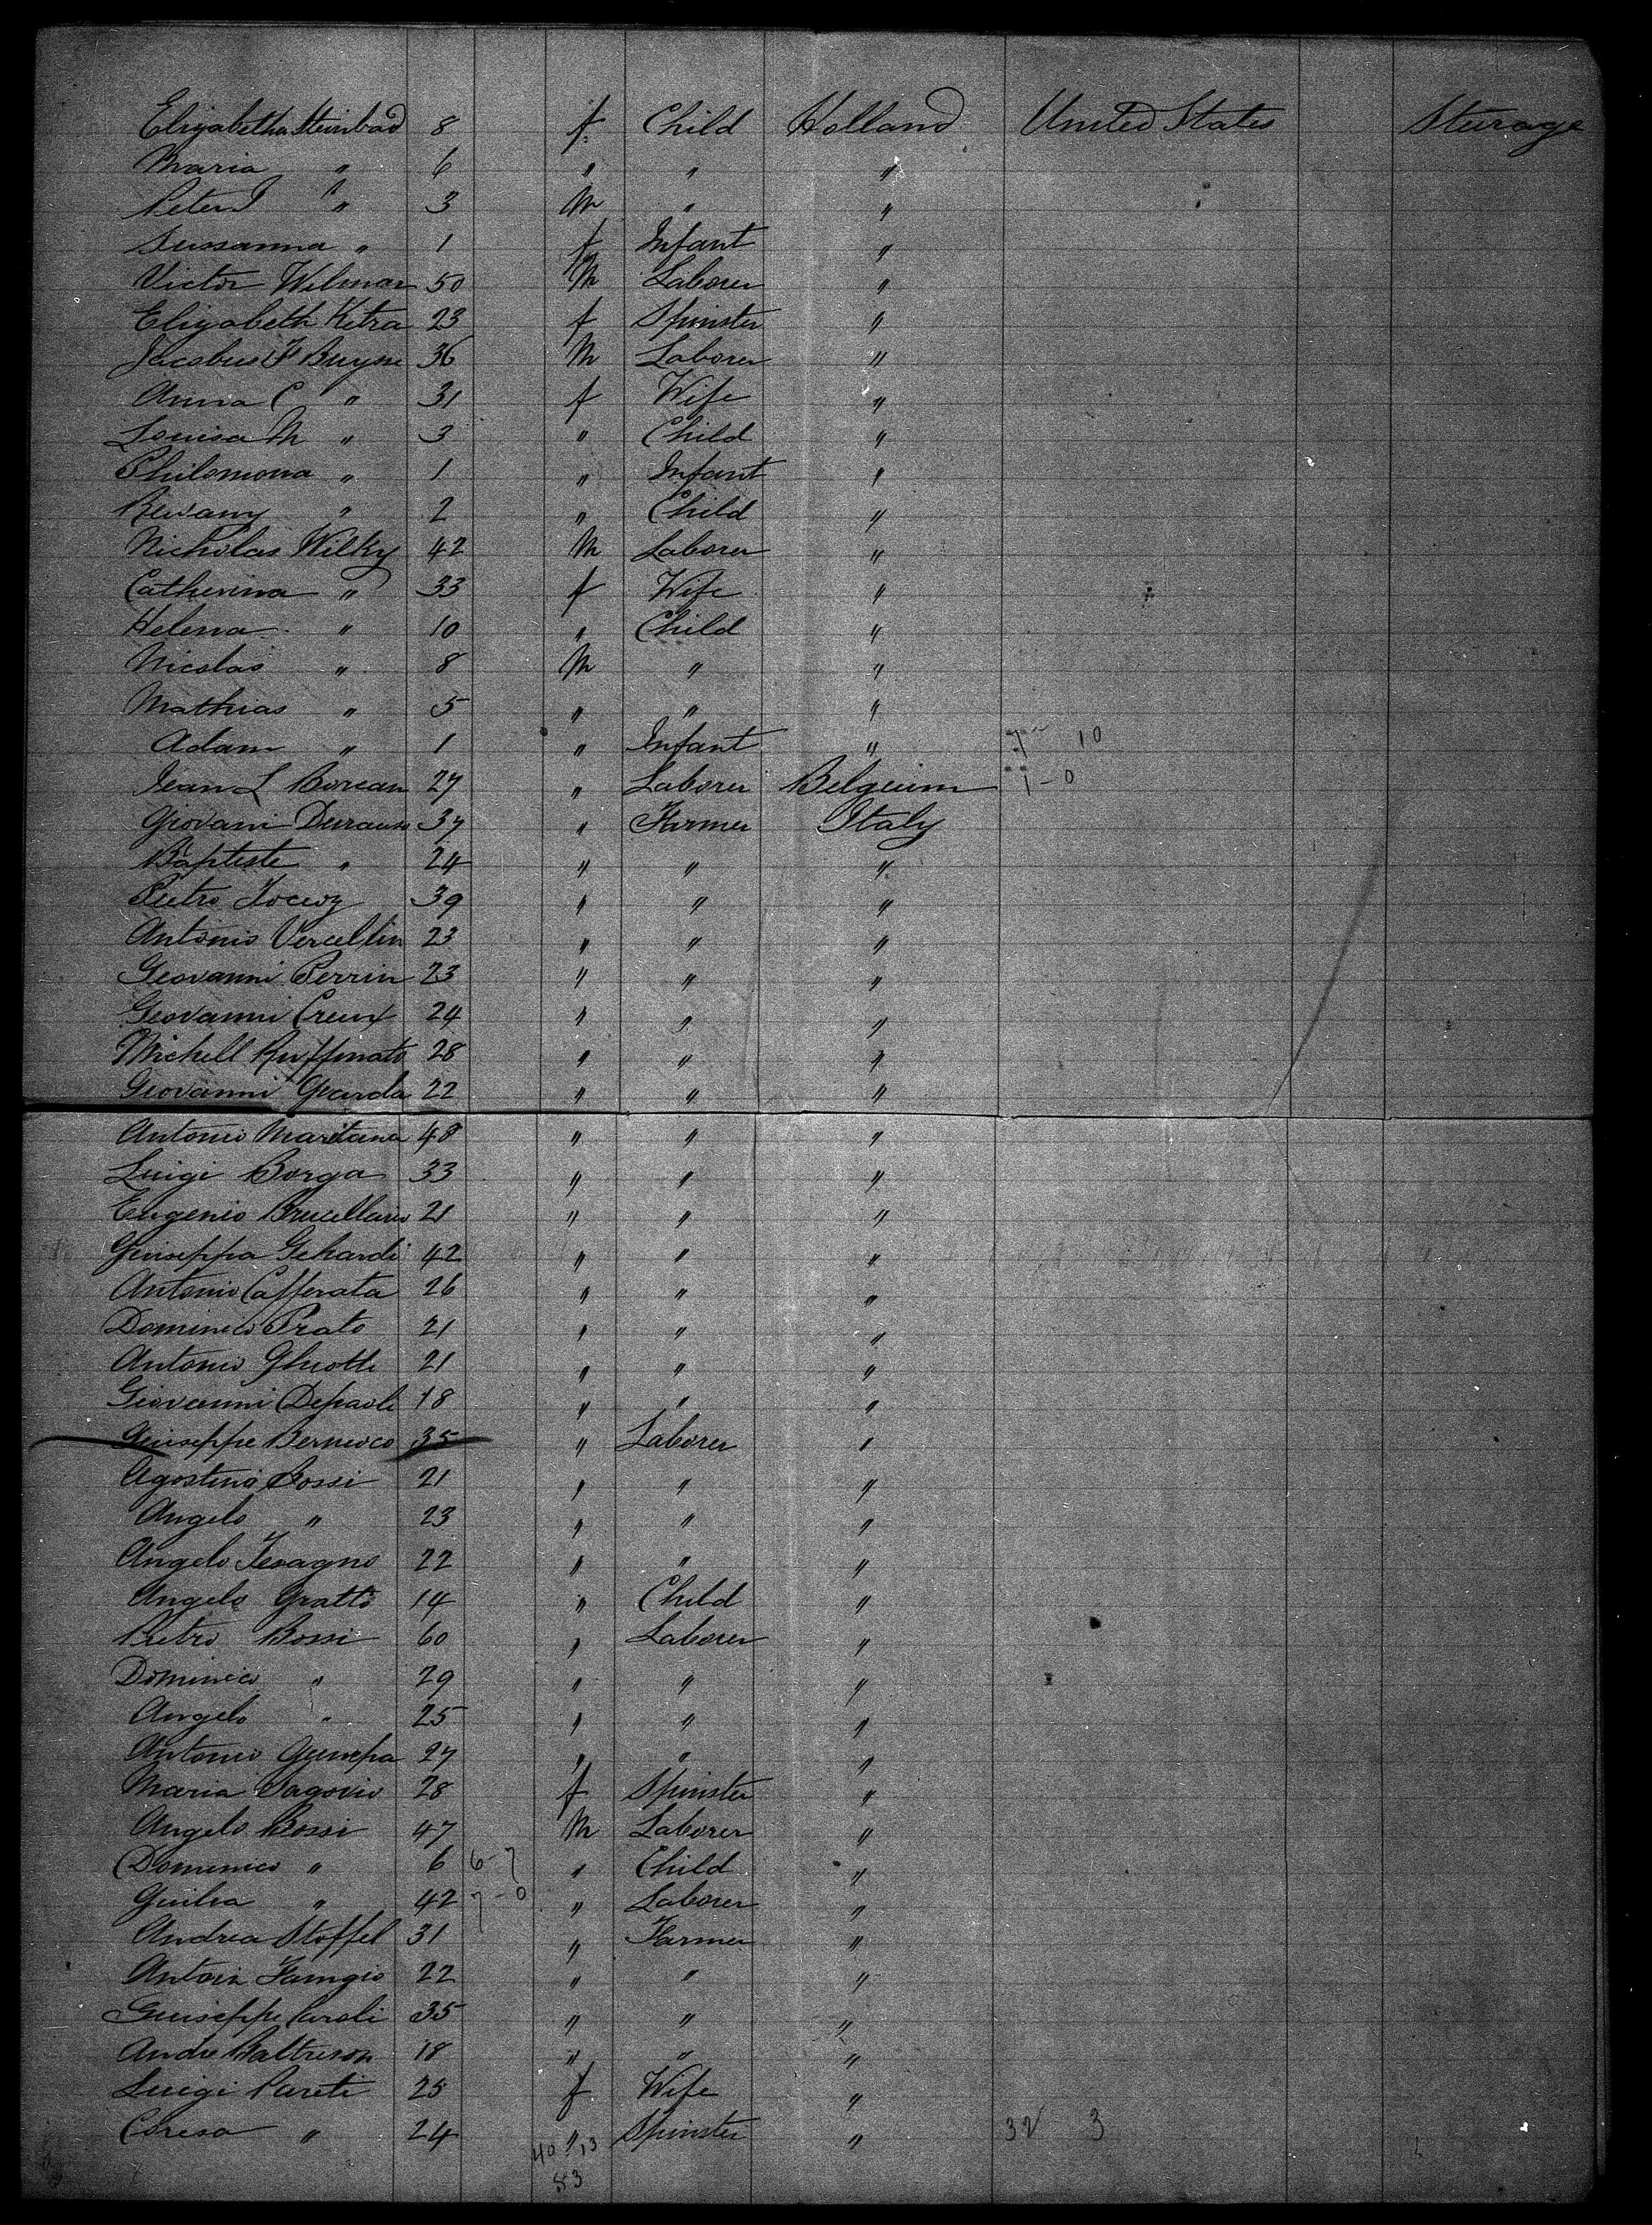 Elizabetha Steinbad 8 f Child Holland United States Sturage
Maria " 6 " " "
Peter J " 3 M " "
Sussanna " 1 f Infant "
Victor Wilmar 50 M Laborer "
Elizabeth Ketra 23 f Spinster "
Jacobus F Buyse 36 M Laborer "
Anna C " 31 f Wife "
Louisa M " 3 " Child "
Philomona " 1 " Infant "
" 2 " Child "
Nicholas Wilky 42 M Laborer "
Catherina " 33 f Wife "
Helena " 10 " Child "
Nicolas " 8 M " "
Mathias " 5 " " "
Adam " 1 " Infant " 7 10
Jean L Borean 27 " Laborer Belgeium 7-0
Giovani Durauss 37 " Farmer Italy
Baptiste " 24 " " "
Pietro 39 " " "
Antonio Vercellin 23 " " "
Geovanni Perrin 23 " " "
Geovanni Creux 24 " " "
Michell Ruffinato 28 " " "
Giovanni Guarda 22 " " "
Antonio Maritana 48 " " "
Luigi Borga 33 " " "
Eugenio Brucellario 21 " " "
Giuseppa Gehardi 42 " " "
Antonio Cafferata 26 " " "
Dominico Prato 21 " " "
Antonio Ghiotti 21 " " "
Giovanni Depaoli 18 " " "
Giuseppe Bernioco 35 " Laborer "
Agostino Bossi 21 " " "
Angelo " 23 " " "
Angelo 22 " " "
Angelo Gratto 14 " Child "
Pietro Bossi 60 " Laborer "
Dominico " 29 " " "
Angelo " 25 " " "
Antonio 27 " " "
Maria Sagovio 28 f Spinster "
Angelo Bossi 47 M Laborer "
Dominico " 6 6-7 " Child "
Guilia " 42 7-0 " Laborer "
Andrea Stoffel 31 " Farmer "
Antoin Famgio 22 " " "
Guiseppe Caroli 35 " " "
Andre Baltrison 18 " " "
Luigi Pareti 25 f Wife "
Coresa " 24 " Spinster " 32 3
40 13
53